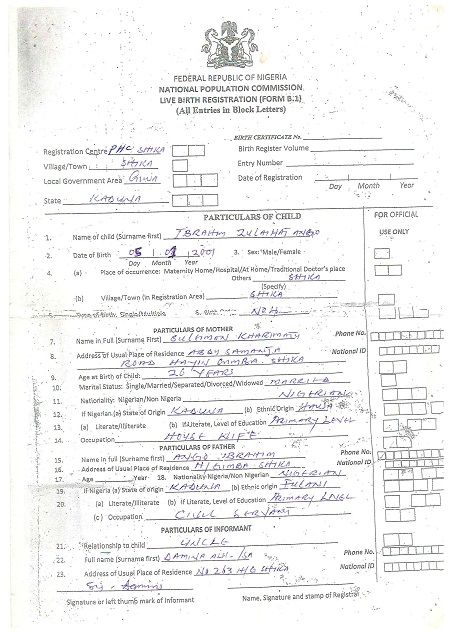 FEDERAL REPUBLIC OF NIGERIA
NATIONAL POPULATION COMMISSION
LIVE BIRTH REGISTRATION (FORM B.1)
(All Entries in Block Letters)
BIRTH CERTIFICATE No.
Registration Centre PHC SHIKA
Birth Register Volume
Village/Town SHIKA
Entry Number
Local Government Area GIWA
Date of Registration
Day Month Year
State KADUNA
PARTICULARS OF CHILD
FOR OFFICIAL USE ONLY
1. Name of child (Surname first) IBRAHIM ZULAIHAT ANGO
2. Date of Birth 05 2001 3. Sex: Male/Female
Day Month Year
4. (a) Place of occurrence: Maternity Home/Hospital/At Home/Traditional Doctor's place
Others SHIKA
(Specify)
(b) Village/Town (in Registration Area) SHIKA
5. Type of birth, Single/Multiple 6. Birth
PARTICULARS OF MOTHER
7. Name in Full (Surname First) SULAIMAN Phone No.
8. Address of Usual Place of Residence SAMANJA National ID
ROAD HAYIN SHIKA
9. Age at Birth of Child: 20 YEARS
10. Marital Status: Single/Married/Separated/Divorced/Widowed MARRIED
11. Nationality: Nigerian/Non Nigeria NIGERIAN
12. If Nigerian (a) State of Origin KADUNA (b) Ethnic Origin HAUSA
13. (a) Literate/Illiterate (b) If Literate, Level of Education PRIMARY LEVEL
14. Occupation HOUSE WIFE
PARTICULARS OF FATHER
15. Name in full (Surname first) ANGO IBRAHIM Phone No.
16. Address of Usual Place of Residence SHIKA National ID
17. Age Year 18. Nationality Nigerian/Non Nigerian NIGERIAN
19. If Nigeria (a) State of origin KADUNA (b) Ethnic origin FULANI
20. (a) Literate/Illiterate (b) If Literate, Level of Education PRIMARY LEVEL
(c) Occupation CIVIL SERVANT
PARTICULARS OF INFORMANT
21. Relationship to child UNCLE
22. Full name (Surname first) ALH. ISA Phone No.
23. Address of Usual Place of Residence No 263 H/G SHIKA National ID
Signature or left thumb mark of Informant
Name, Signature and stamp of Registrar